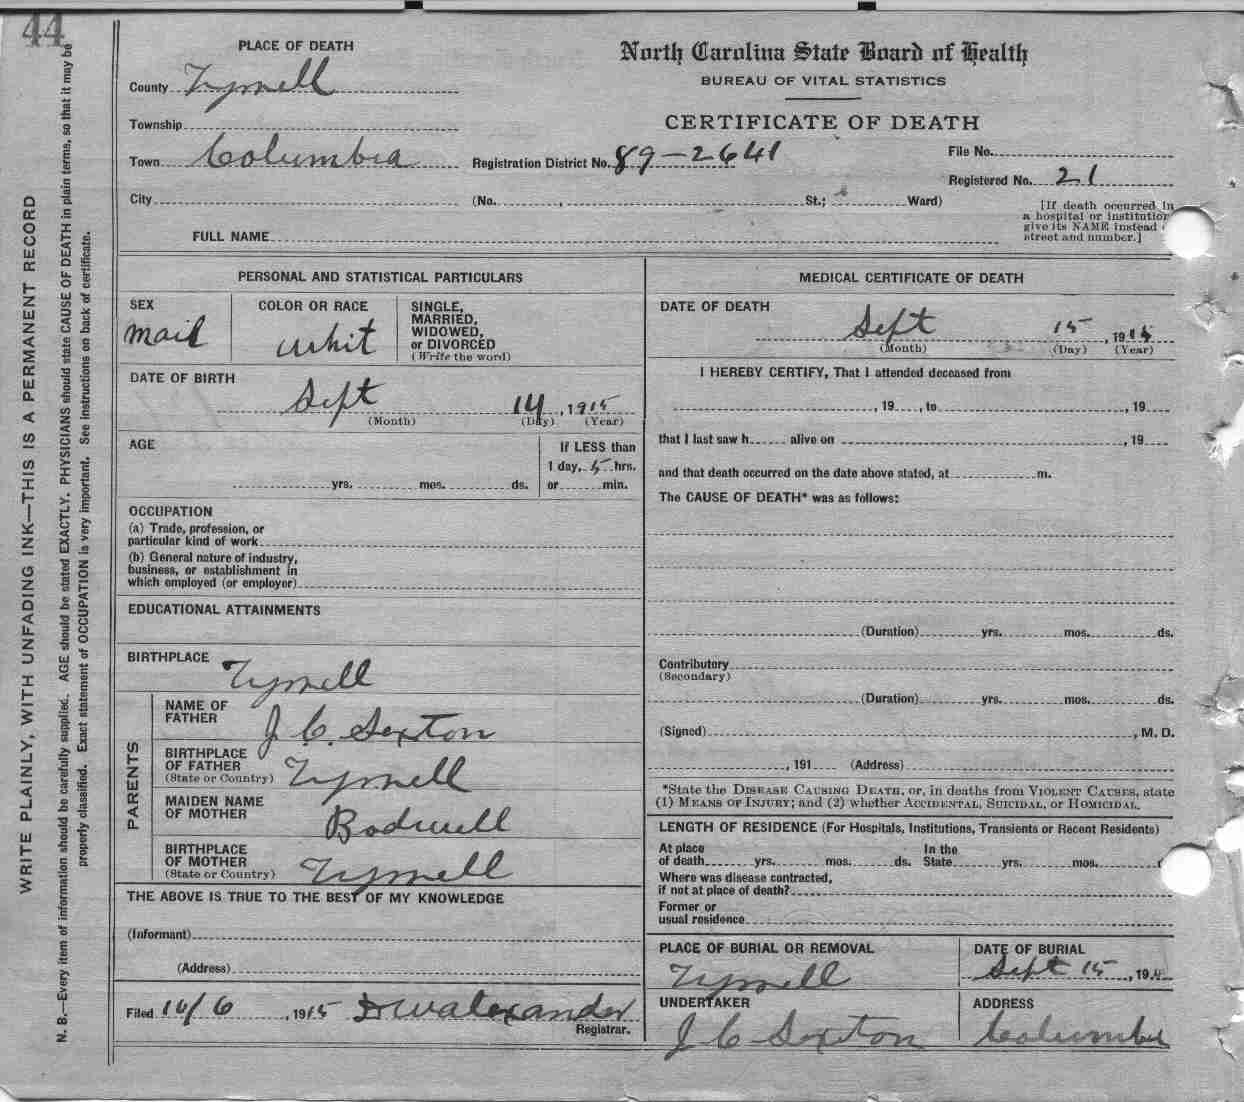 44
PLACE OF DEATH
County Tyrrell
Township
Town Columbia
City
North Carolina State Board of Health
BUREAU OF VITAL STATISTICS
CERTIFICATE OF DEATH
Registration District No. 89-2641
File No.
Registered No. 21
(No. , St.; Ward)
[If death occurred in
a hospital or institution
give its NAME instead
street and number.]
FULL NAME
PERSONAL AND STATISTICAL PARTICULARS
SEX
mail
COLOR OR RACE
whit
SINGLE,
MARRIED,
WIDOWED,
or DIVORCED
(Write the word)
DATE OF BIRTH
Sept 14, 1915
(Month) (Day) (Year)
AGE
yrs. mos. ds.
If LESS than
1 day, 5 hrs.
or min.
OCCUPATION
(a) Trade, profession, or
particular kind of work
(b) General nature of industry,
business, or establishment in
which employed (or employer)
EDUCATIONAL ATTAINMENTS
BIRTHPLACE
Tyrrell
PARENTS
NAME OF
FATHER
J. C. Sexton
BIRTHPLACE
OF FATHER
(State or Country)
Tyrrell
MAIDEN NAME
OF MOTHER
Bodwell
BIRTHPLACE
OF MOTHER
(State or Country)
Tyrrell
THE ABOVE IS TRUE TO THE BEST OF MY KNOWLEDGE
(Informant)
(Address)
Filed 10/6, 1915
Registrar.
MEDICAL CERTIFICATE OF DEATH
DATE OF DEATH
Sept 15, 191
(Month) (Day) (Year)
I HEREBY CERTIFY, That I attended deceased from
, 19 , to , 19
that I last saw h alive on , 19
and that death occurred on the date above stated, at m.
The CAUSE OF DEATH* was as follows:
(Duration) yrs. mos. ds.
Contributory
(Secondary)
(Duration) yrs. mos. ds.
(Signed) , M. D.
, 191 (Address)
*State the DISEASE CAUSING DEATH, or, in deaths from VIOLENT CAUSES, state
(1) MEANS OF INJURY; and (2) whether ACCIDENTAL, SUICIDAL, or HOMICIDAL.
LENGTH OF RESIDENCE (For Hospitals, Institutions, Transients or Recent Residents)
At place
of death yrs. mos. ds.
In the
State yrs. mos.
Where was disease contracted,
if not at place of death?
Former or
usual residence
PLACE OF BURIAL OR REMOVAL
Tyrrell
DATE OF BURIAL
Sept 15, 191
UNDERTAKER
J C Sexton
ADDRESS
WRITE PLAINLY, WITH UNFADING INK—THIS IS A PERMANENT RECORD
N. B.—Every item of information should be carefully supplied. AGE should be stated EXACTLY. PHYSICIANS should state CAUSE OF DEATH in plain terms, so that it may be
properly classified. Exact statement of OCCUPATION is very important. See instructions on back of certificate.